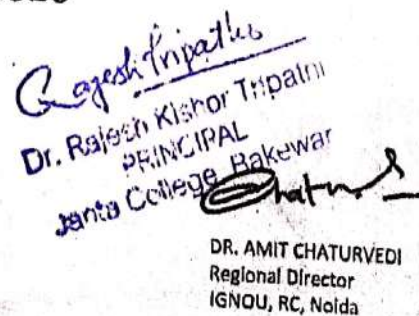 Rajesh Tripathi
Dr. Rajesh Kishor Tripathi
PRINCIPAL
Janta College, Bakewar
Chaturvedi
DR. AMIT CHATURVEDI
Regional Director
IGNOU, RC, Noida